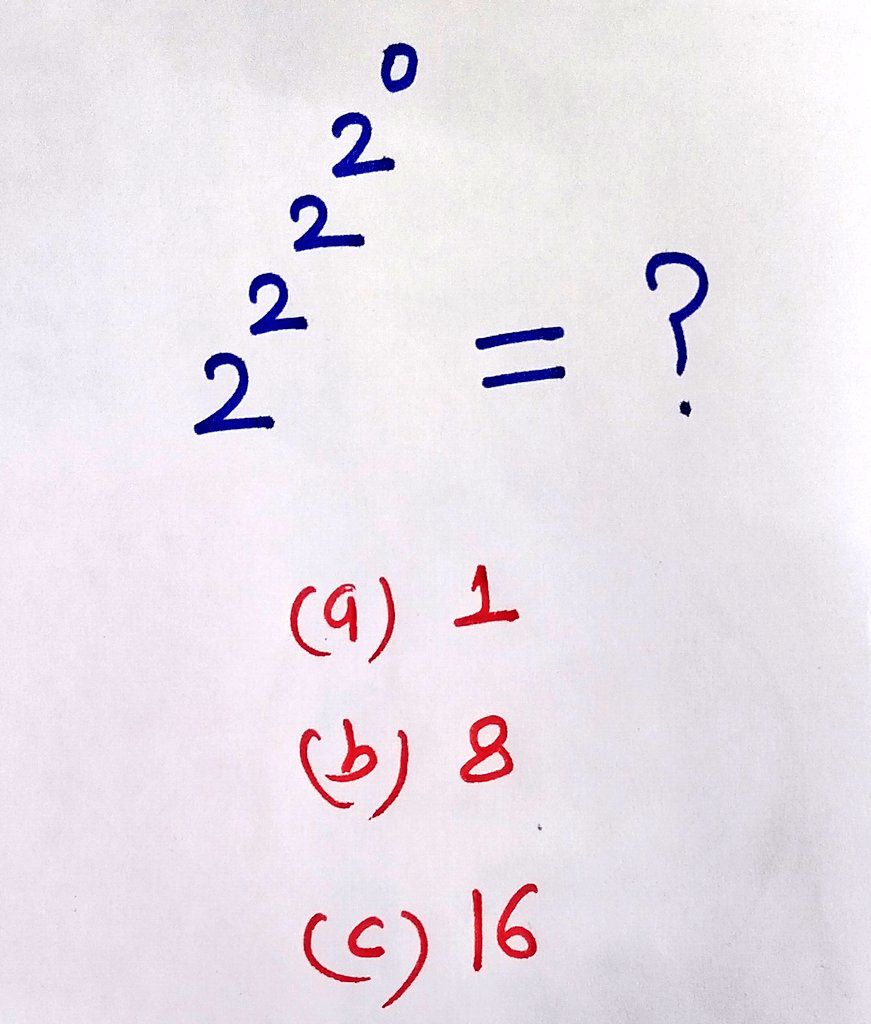 2^2^2^2^0 = ?
(a) 1
(b) 8
(c) 16